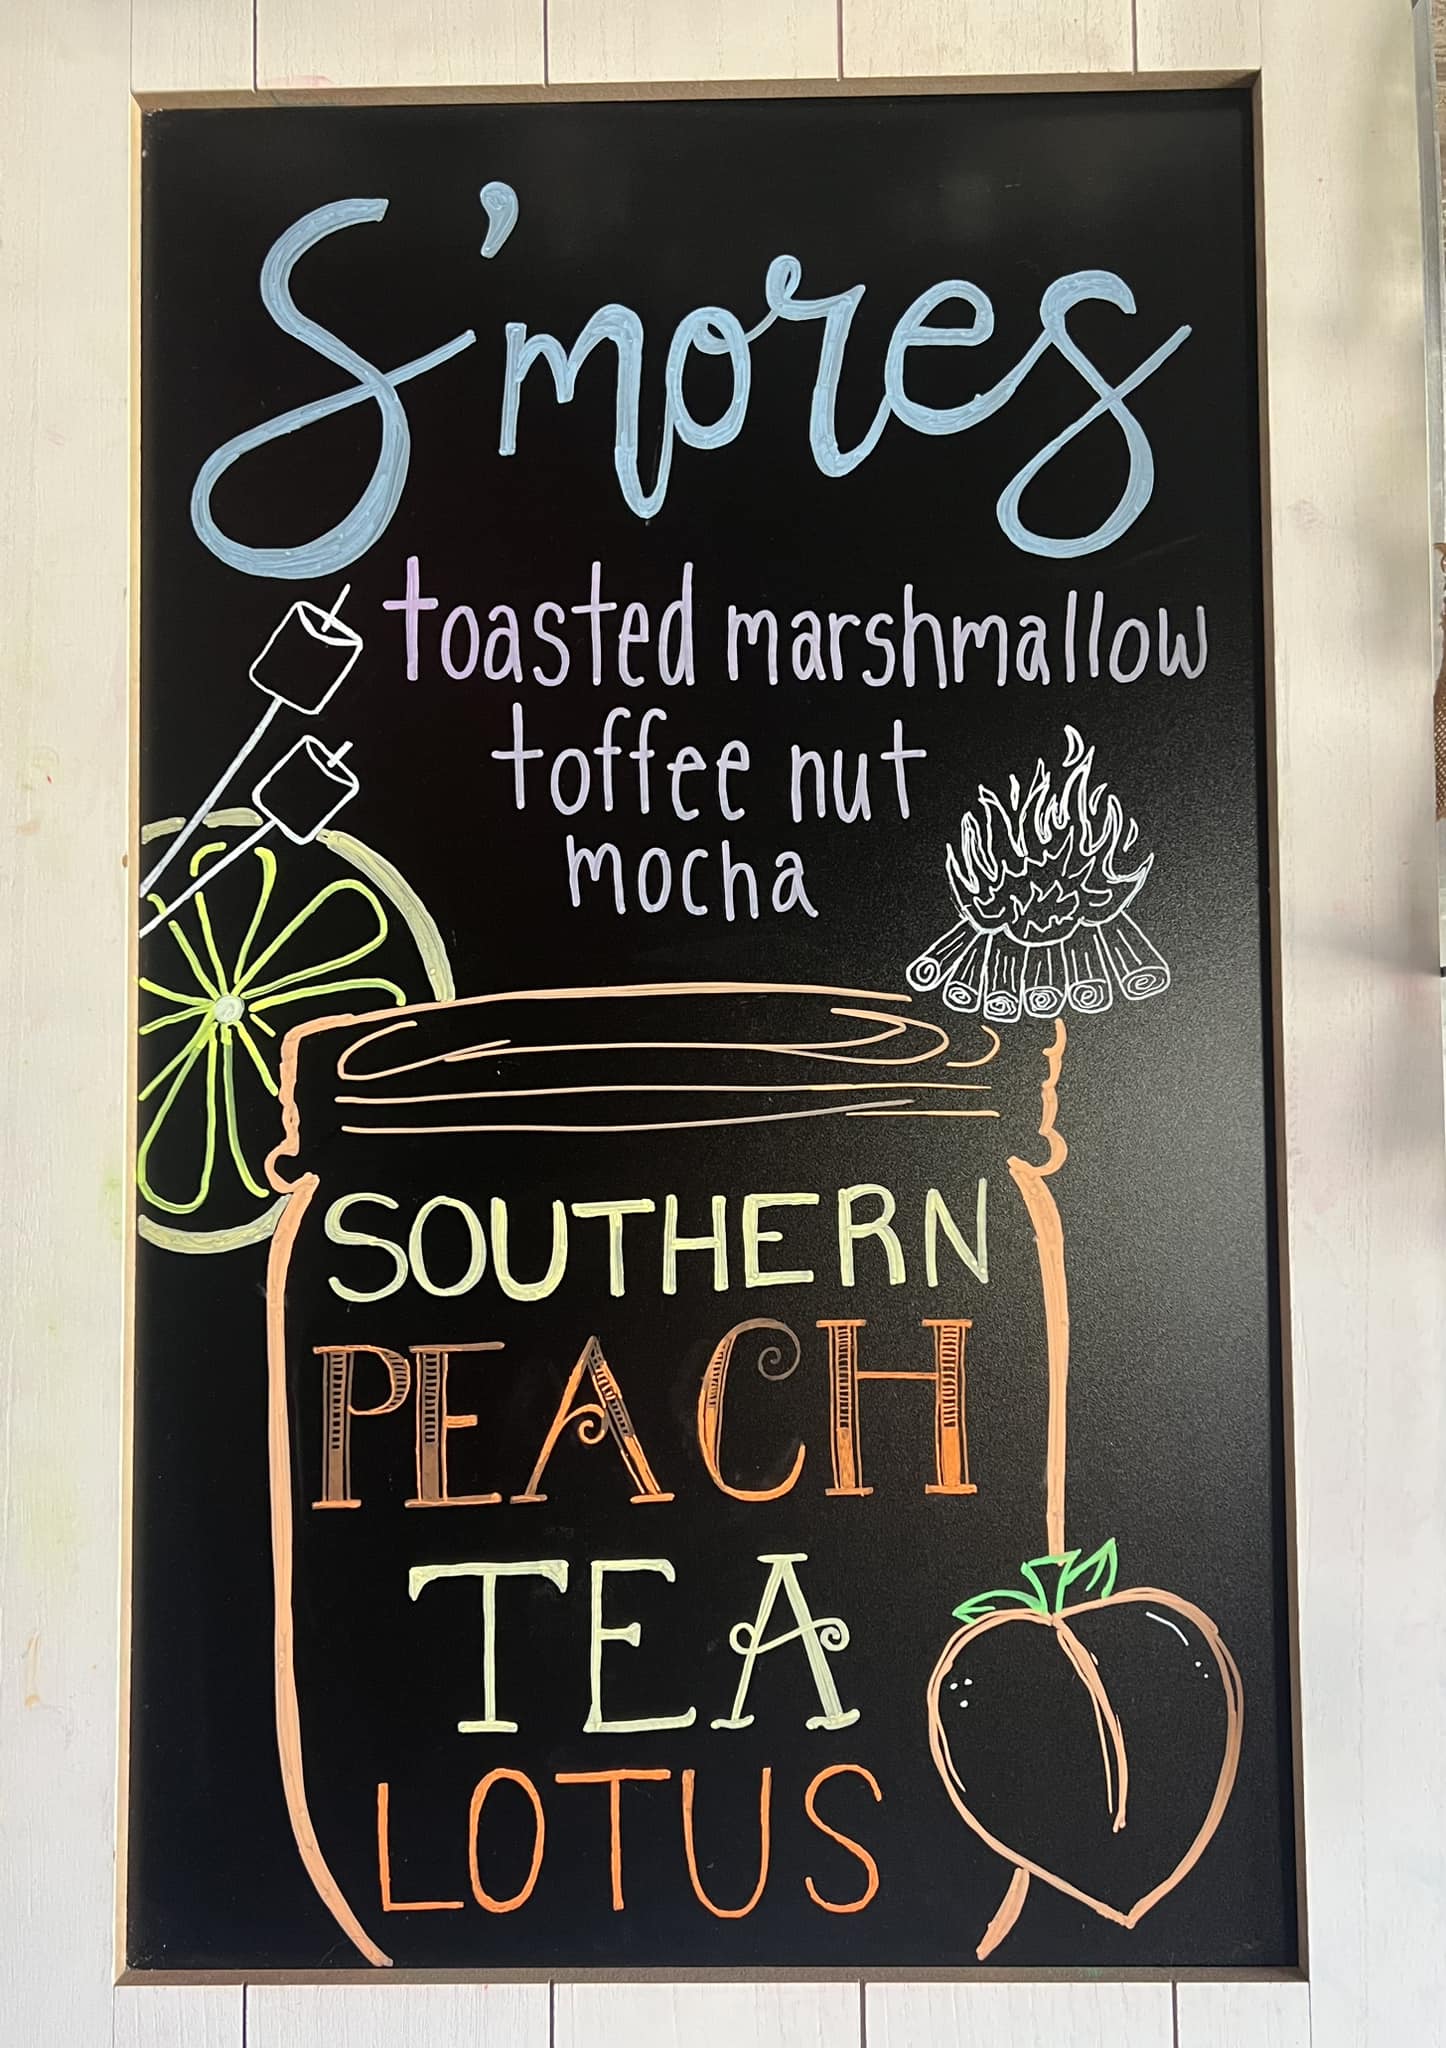 S'mores
toasted marshmallow
toffee nut
mocha
SOUTHERN
PEACH
TEA
LOTUS